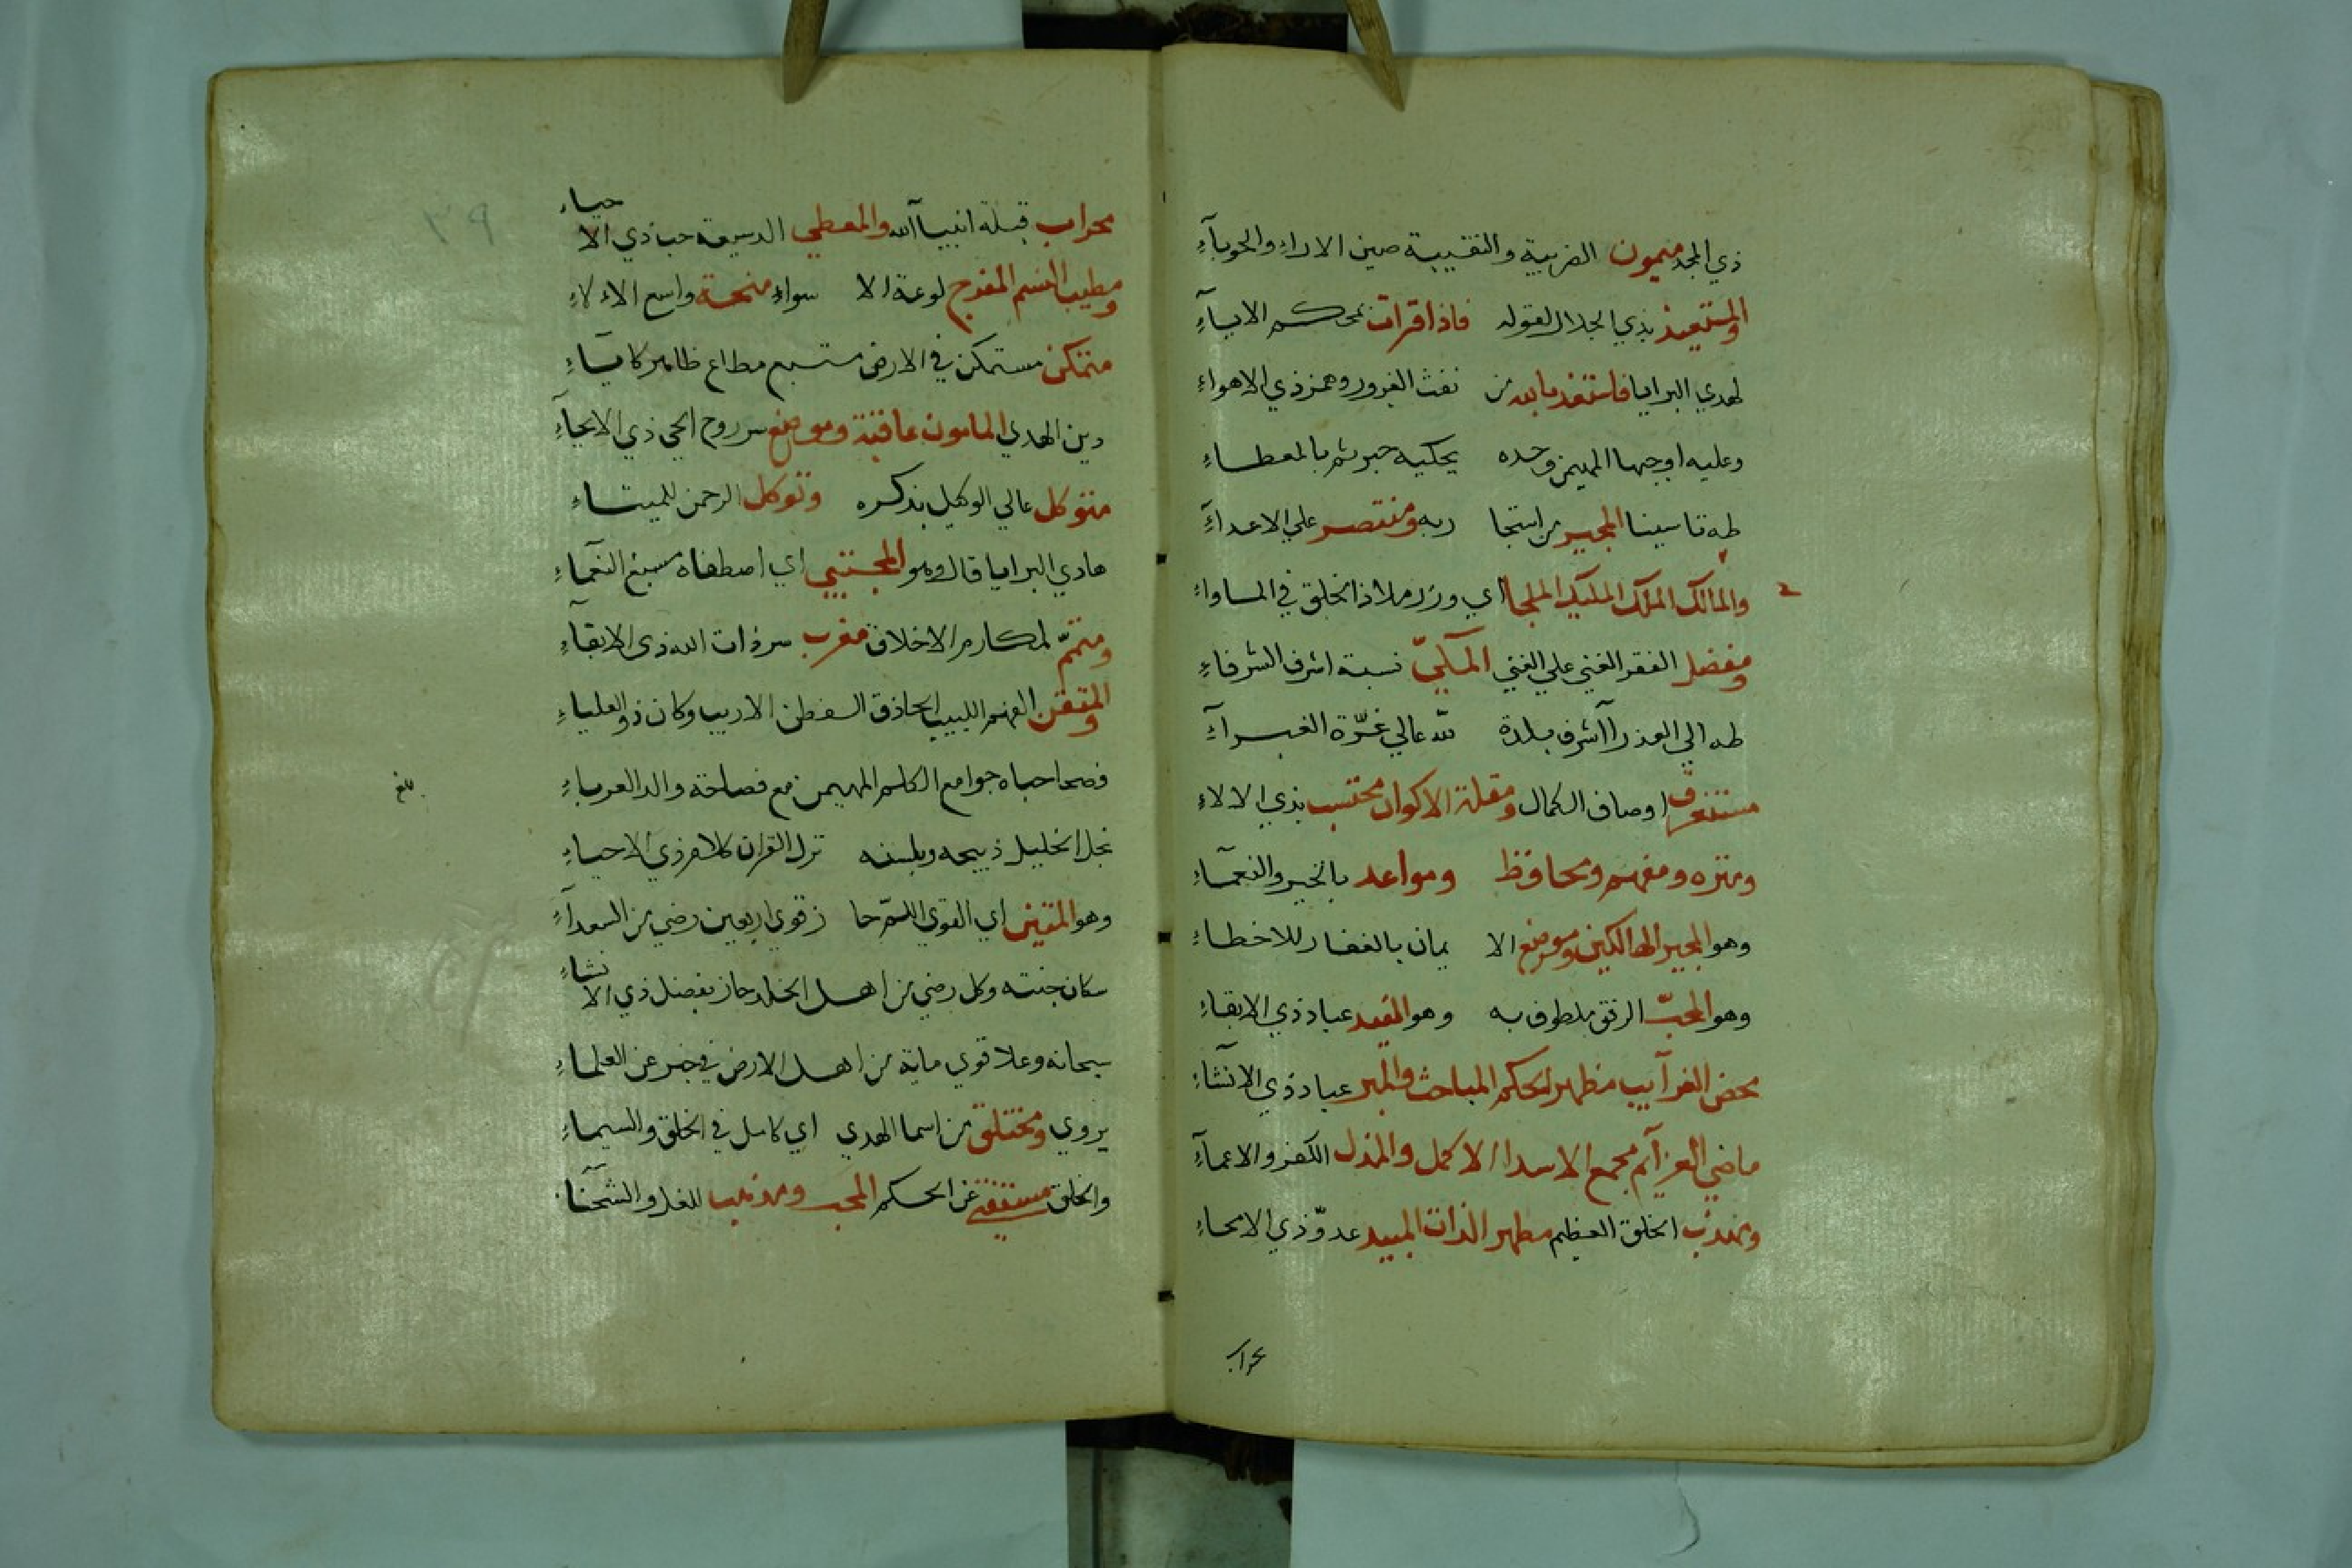 ذي المجد ميمون الضريبة والنقيبة صين الاراء والحوباء
والمستعيذ بذي الجلال لقوله فاذا قرات بمحكم الانباء
لهدي البرايا فاستعذ بالله من نفث الغرور وهمز ذي الاهواء
وعليه اوجبها المهيمن وحده يحكيه حبر
طه تاسينا المجير من استجا ربه ومنتصر علي الاعداء
والمالك الملك المليك الملجا اي وزر ملاذ الخلق في
ومفضل الفقر الغني علي الغني المكيّ نسبة اشرف الشرفاء
طه الي العذرا اشرف بلدة لله عالي غرّة الغبراء
مستغرق اوصاف الكمال ومقلة الاكوان محتسب بذي الالاء
ومنزه ومفهم ومحافظ ومواعد بالخير والنعماء
وهو المجير الهالكين وموضع الا يمان بالغفار للاخطاء
وهو المحبّ الرفق ملطوف به وهو المفيد عباد ذي الابقاء
محض الغرايب مظهر لحكم المباحث والمبر عباد ذي الانشاء
ماضي العزايم مجمع الاسدا الاكمل والمذل الكفر والاعماء
ومهذب الخلق العظيم مطهر الذات المبيد عدوّ ذي الامحاء
محراب
٣٩
محراب قبلة انبيا الله والمعطي الدسيعة حب ذي الا حياء
ومطيب النسم المفرج لوعة الا سواء منحة واسع الالاء
متمكن مستمكن في الارض متبع مطاع ظاهر
دين الهدي المامون عاقبة وموضع سر روح الحي ذي الايحاء
متوكل عالي الوكيل بذكره وتوكل الرحمن
هادي البرايا قال وهو المجتبي اي اصطفاه مسبغ النعماء
ومتمّم لمكارم الاخلاق مغرب سر ذات الله ذي الابقاء
والمتقن الفهم اللبيب الحاذق الفطن الاريب وكان ذو العلياء
فصحا حباه جوامع الكلم المهيمن مع فصاحة والد العرباء
بلغ
نجل الخليل ذبيحه وبلسنه نزل القران كلام ذي الاحياء
وهو المتين اي القوي اللسّ حا ز قوي اربعين رضي من السعداء
سكان جنته وكل رضي من اهل الخلد حاز بفضل ذي الا نشاء
سبحانه وعلا قوي ماية من اهل الارض في خبر عن العلماء
يروي ومختلق من اسما الهدي اي كامل في الخلق والسيماء
والخلق مستفتي عن الحكم المجب ومذهب للغل والشحنا